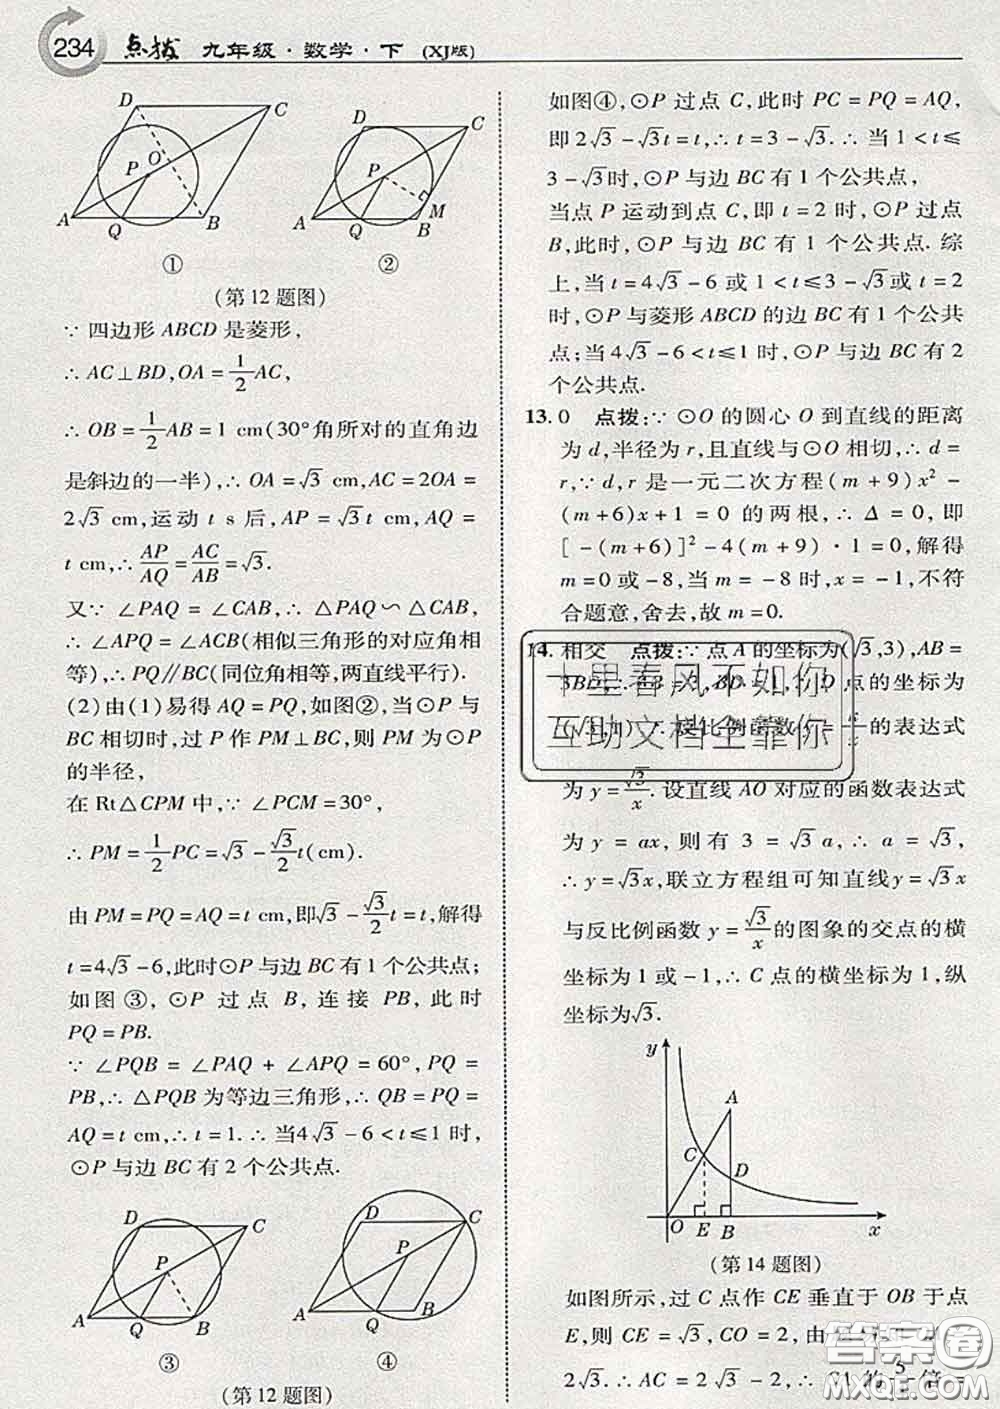 234 点拨 九年级·数学·下 (XJ版)
D C O P A Q B
①
D C P M A Q B
②
(第12题图)
∵ 四边形 ABCD 是菱形,
∴ AC⊥BD, OA = 1/2 AC,
∴ OB = 1/2 AB = 1 cm(30°角所对的直角边
是斜边的一半), ∴ OA = √3 cm, AC = 2OA =
2√3 cm, 运动 t s 后, AP = √3 t cm, AQ =
t cm, ∴ AP/AQ = AC/AB = √3.
又∵ ∠PAQ = ∠CAB, ∴ △PAQ∽△CAB,
∴ ∠APQ = ∠ACB(相似三角形的对应角相
等), ∴ PQ∥BC(同位角相等,两直线平行).
(2)由(1)易得 AQ = PQ, 如图②, 当⊙P 与
BC 相切时, 过 P 作 PM⊥BC, 则 PM 为⊙P
的半径,
在 Rt△CPM 中, ∵ ∠PCM = 30°,
∴ PM = 1/2 PC = √3 - √3/2 t(cm).
由 PM = PQ = AQ = t cm, 即√3 - √3/2 t = t, 解得
t = 4√3 - 6, 此时⊙P 与边 BC 有 1 个公共点;
如图③, ⊙P 过点 B, 连接 PB, 此时
PQ = PB.
∵ ∠PQB = ∠PAQ + ∠APQ = 60°, PQ =
PB, ∴ △PQB 为等边三角形, ∴ QB = PQ =
AQ = t cm, ∴ t = 1. ∴ 当 4√3 - 6 < t ≤ 1 时,
⊙P 与边 BC 有 2 个公共点.
D C P A Q B
③
D C P A Q B
④
(第12题图)
如图④, ⊙P 过点 C, 此时 PC = PQ = AQ,
即 2√3 - √3t = t, ∴ t = 3 - √3. ∴ 当 1 < t ≤
3 - √3时, ⊙P 与边 BC 有 1 个公共点,
当点 P 运动到点 C, 即 t = 2 时, ⊙P 过点
B, 此时, ⊙P 与边 BC 有 1 个公共点. 综
上, 当 t = 4√3 - 6 或 1 < t ≤ 3 - √3或 t = 2
时, ⊙P 与菱形 ABCD 的边 BC 有 1 个公共
点; 当 4√3 - 6 < t ≤ 1 时, ⊙P 与边 BC 有 2
个公共点.
13. 0 点拨: ∵ ⊙O 的圆心 O 到直线的距离
为 d, 半径为 r, 且直线与⊙O 相切, ∴ d =
r, ∵ d, r 是一元二次方程(m + 9)x² -
(m + 6)x + 1 = 0 的两根, ∴ Δ = 0, 即
[ -(m + 6)]² - 4(m + 9)·1 = 0, 解得
m = 0 或 -8, 当 m = -8 时, x = -1, 不符
合题意, 舍去, 故 m = 0.
14. 相交 点拨: ∵ 点 A 的坐标为(√3, 3), AB =
3BD, ∴ 点的坐标为
十里春风不如你
互助文档全靠你
的表达式
为 y = √3/x. 设直线 AO 对应的函数表达式
为 y = ax, 则有 3 = √3 a, ∴ a = √3,
∴ y = √3x, 联立方程组可知直线 y = √3 x
与反比例函数 y = √3/x 的图象的交点的横
坐标为 1 或 -1, ∴ C 点的横坐标为 1, 纵
坐标为√3.
y A C D O E B x
(第14题图)
如图所示, 过 C 点作 CE 垂直于 OB 于点
E, 则 CE = √3, CO = 2,
2√3. ∴ AC = 2√3 - 2,
答案圈
MXQE.COM